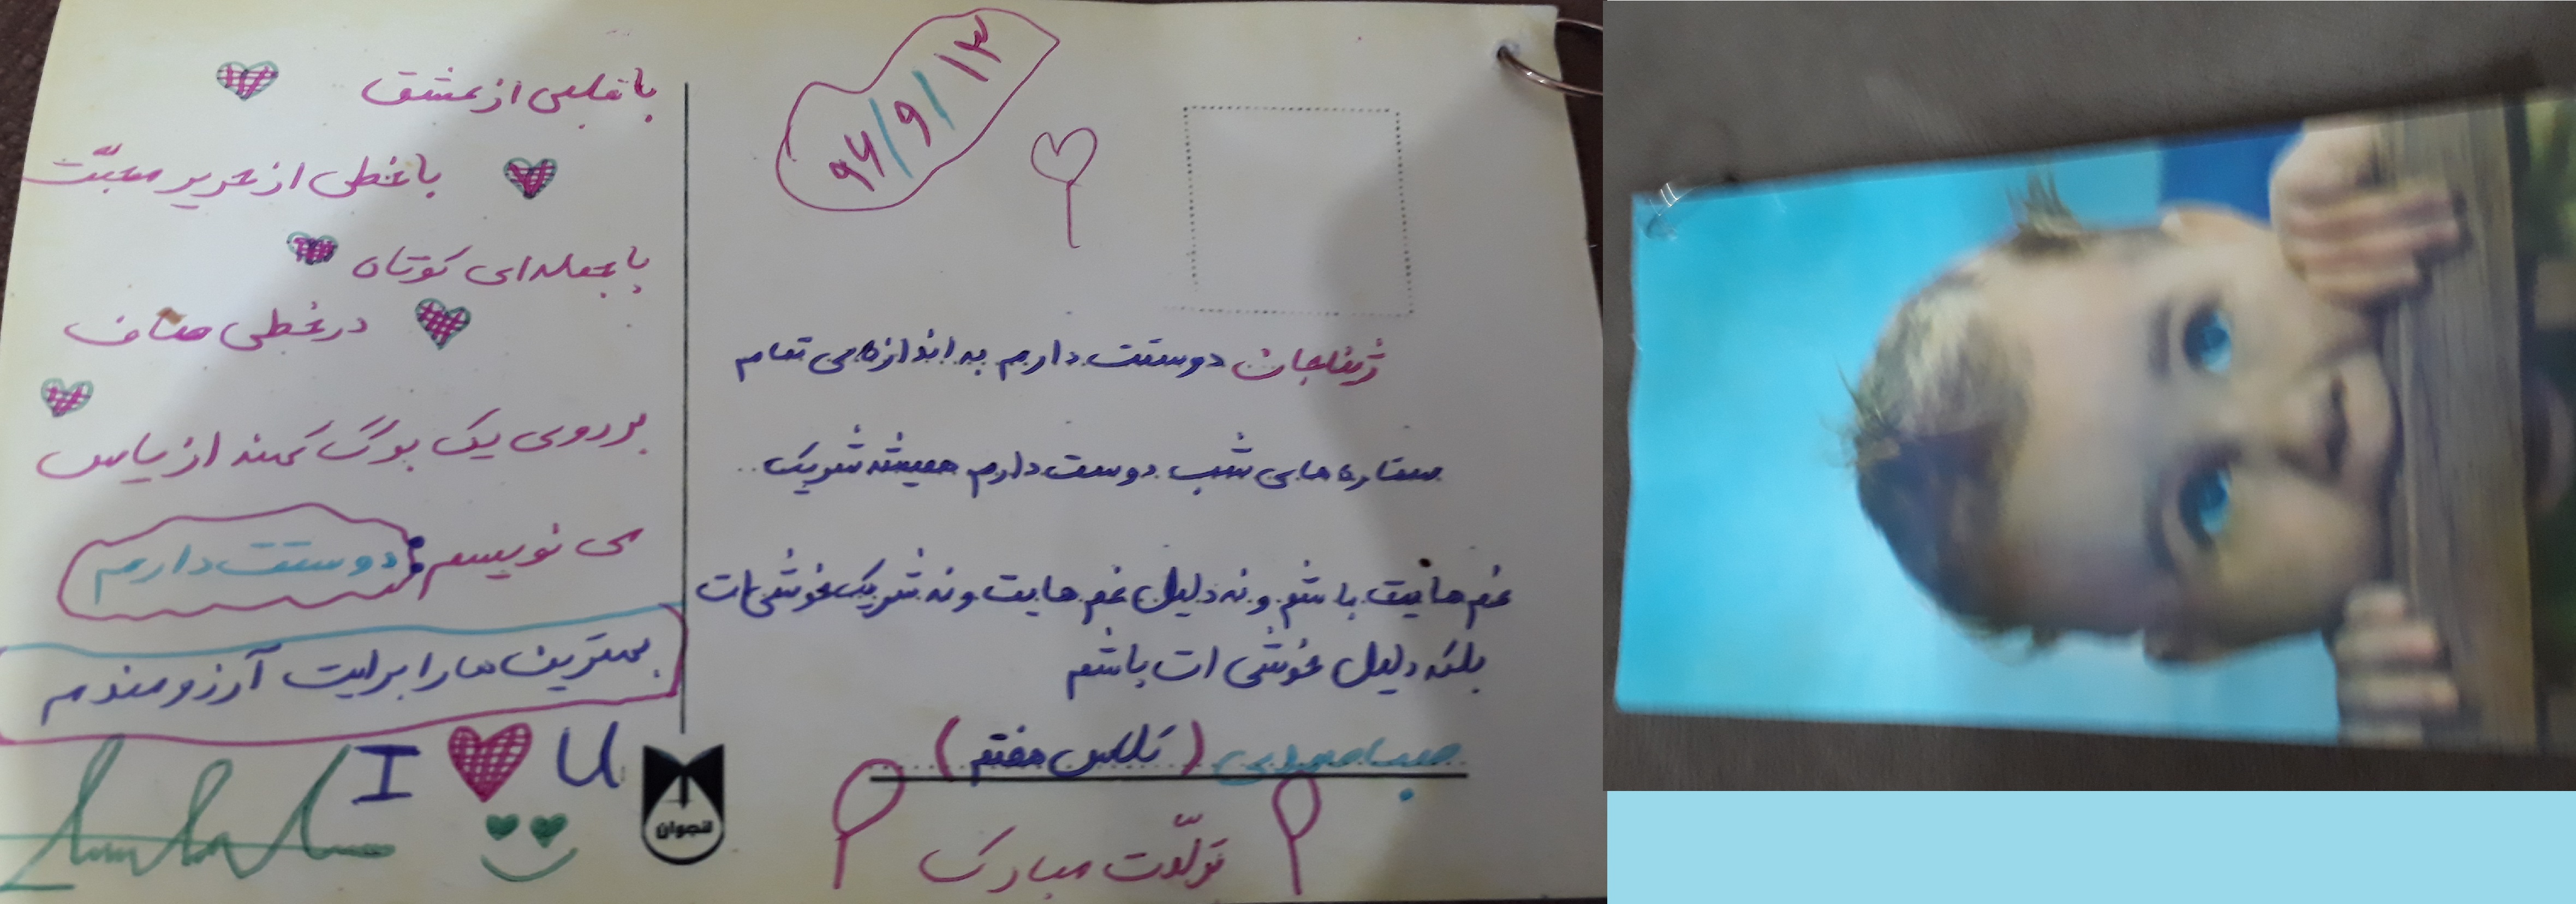 ۹۶/۹/۱۳
ژینا جان دوستت دارم به اندازه ی تمام
ستاره های شب دوست دارم همیشه شریک..
غم هایت باشم و نه دلیل غم هایت و نه شریک خوشی ات
بلکه دلیل خوشی ات باشم
(کلاس هفتم)
تولّدت مبارک
با قلبی از عشق
با خطی از حریر محبّت
با جمله ای کوتاه
در خطی صاف
بر روی یک برگ کهنه از یاس
می نویسم: دوستت دارم
بهترین ها را برایت آرزومندم
I U